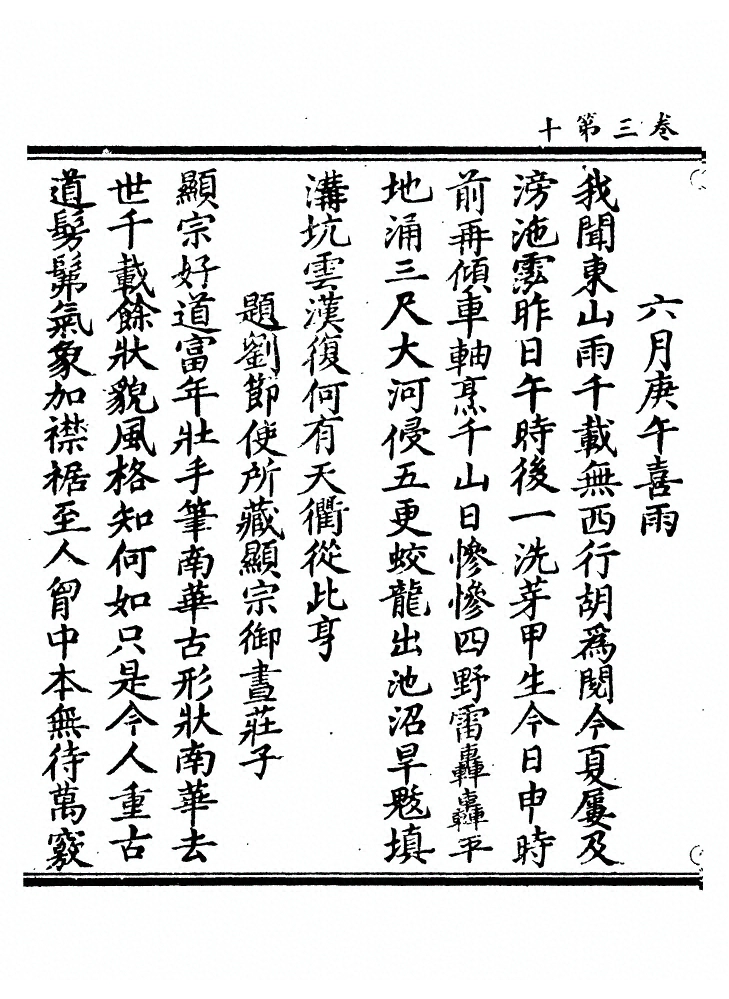 卷三第十
六月庚午喜雨
我聞東山雨千載無西行胡爲閱今夏屢及
滂沲霶昨日午時後一洗芽甲生今日申時
前再傾車軸烹千山日慘慘四野雷轟轟平
地涌三尺大河侵五更蛟龍出池沼旱魃填
溝坑雲漢復何有天衢從此亨
題劉節使所藏顯宗御畫莊子
顯宗好道富年壯手筆南華古形狀南華去
世千載餘狀貌風格知何如只是今人重古
道髣髴氣象加襟裾至人胷中本無待萬竅